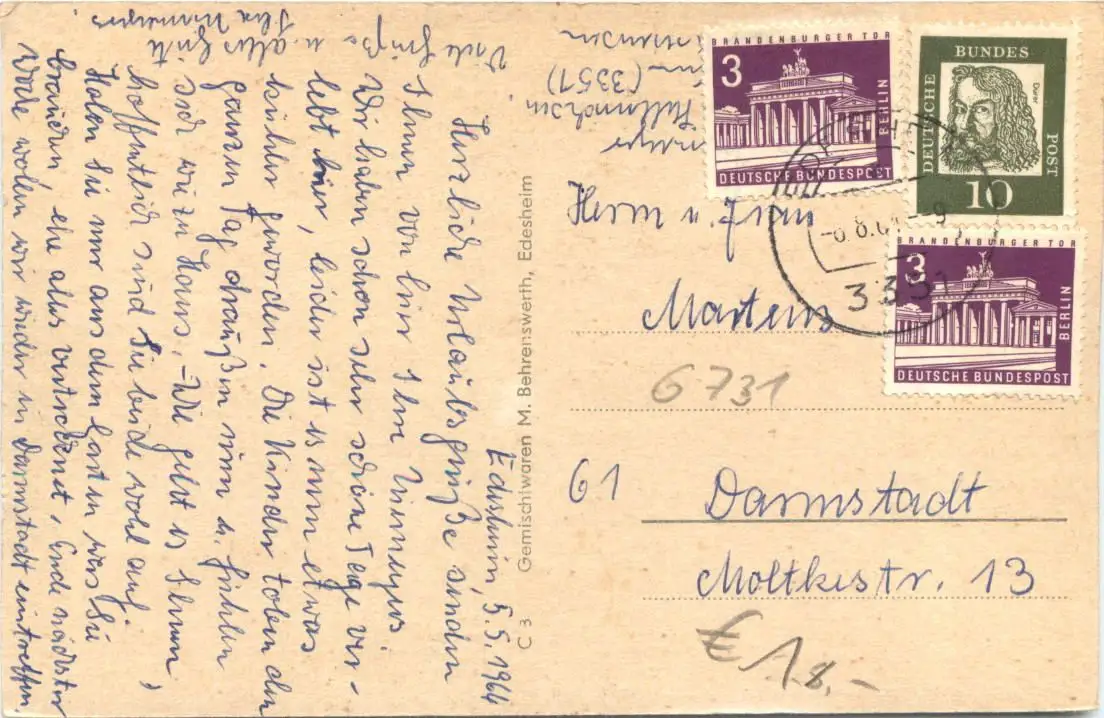 Edesheim, 5.8.1964
Herzliche Urlaubsgrüße senden
Ihnen von hier Ihre
Wir haben schon sehr schöne Tage ver-
lebt hier, leider ist es nun etwas
kühler geworden. Die Kinder toben den
ganzen Tag draußen rum u. fühlen
sich wie zu Haus. – Wie geht es Ihnen,
hoffentlich sind Sie beide wohl auf,
Holen Sie nur aus dem Garten was Sie
brauchen ehe alles vertrocknet, Ende nächster
Woche wollen wir wieder in Darmstadt eintreffen.
Viele Grüße u. alles Gute
Ihre
C 3 Gemischtwaren M. Behrenswerth, Edesheim
(3351)
BRANDENBURGER TOR
3
BERLIN
DEUTSCHE BUNDESPOST
DEUTSCHE
BUNDES
POST
Dürer
10
BRANDENBURGER TOR
3
BERLIN
DEUTSCHE BUNDESPOST
-6.8.64-9
3351
Herrn u. Frau
Martens
6731
61 Darmstadt
Moltkestr. 13
€ 18.-